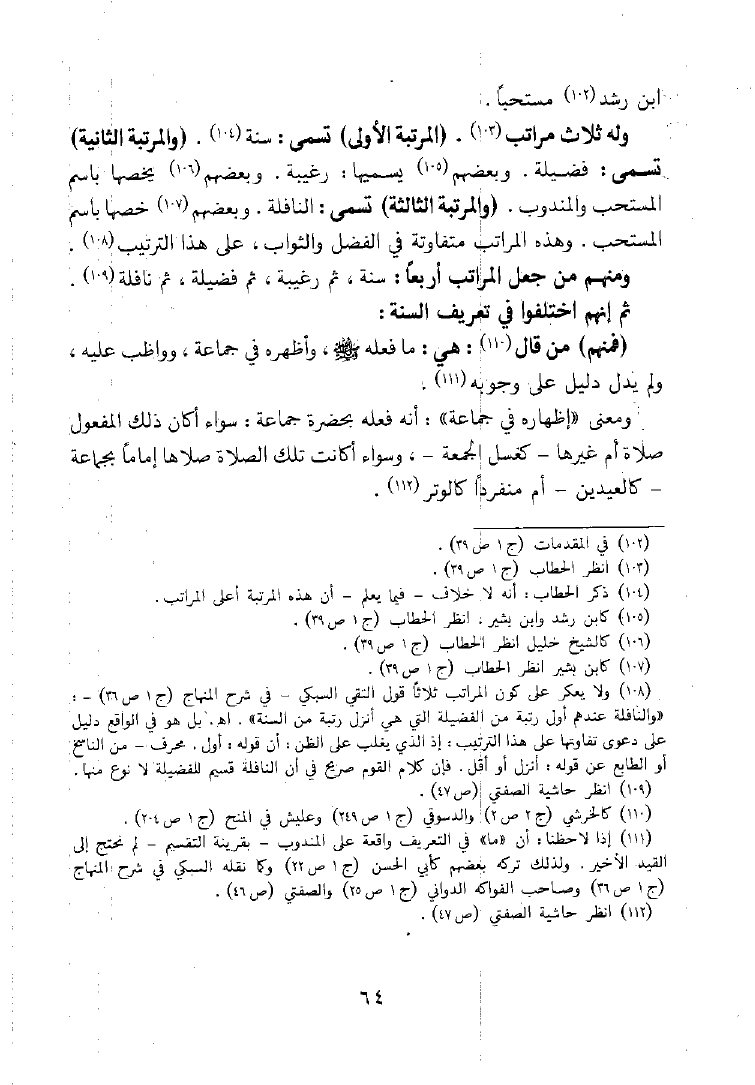 ابن رشد (١٠٢) مستحباً .
وله ثلاث مراتب (١٠٣) . (المرتبة الأولى) تسمى : سنة (١٠٤) . (والمرتبة الثانية)
تسمى : فضيلة . وبعضهم (١٠٥) يسميها : رغيبة . وبعضهم (١٠٦) يخصها باسم
المستحب والمندوب . (والمرتبة الثالثة) تسمى : النافلة . وبعضهم (١٠٧) خصها باسم
المستحب . وهذه المراتب متفاوتة في الفضل والثواب ، على هذا الترتيب (١٠٨) .
ومنهم من جعل المراتب أربعاً : سنة ، ثم رغيبة ، ثم فضيلة ، ثم نافلة (١٠٩) .
ثم إنهم اختلفوا في تعريف السنة :
(فمنهم) من قال (١١٠) : هي : ما فعله ﷺ ، وأظهره في جماعة ، وواظب عليه ،
ولم يدل دليل على وجوبه (١١١) .
ومعنى «إظهاره في جماعة» : أنه فعله بحضرة جماعة : سواء أكان ذلك المفعول
صلاة أم غيرها – كغسل الجمعة – ، وسواء أكانت تلك الصلاة صلاها إماماً بجماعة
– كالعيدين – أم منفرداً كالوتر (١١٢) .
(١٠٢) في المقدمات (ج ١ ص ٣٩) .
(١٠٣) انظر الحطاب (ج ١ ص ٣٩) .
(١٠٤) ذكر الحطاب : أنه لا خلاف – فيما يعلم – أن هذه المرتبة أعلى المراتب .
(١٠٥) كابن رشد وابن بشير ، انظر الحطاب (ج ١ ص ٣٩) .
(١٠٦) كالشيخ خليل انظر الحطاب (ج ١ ص ٣٩) .
(١٠٧) كابن بشير انظر الحطاب (ج ١ ص ٣٩) .
(١٠٨) ولا يعكر على كون المراتب ثلاثاً قول التقي السبكي – في شرح المنهاج (ج ١ ص ٣٦) – :
«والنافلة عندهم أول رتبة من الفضيلة التي هي أنزل رتبة من السنة» . اهـ . بل هو في الواقع دليل
على دعوى تفاوتها على هذا الترتيب : إذ الذي يغلب على الظن : أن قوله : أول . محرف – من الناسخ
أو الطابع عن قوله : أنزل أو أقل . فإن كلام القوم صريح في أن النافلة قسيم للفضيلة لا نوع منها .
(١٠٩) انظر حاشية الصفتي (ص ٤٧) .
(١١٠) كالخرشي (ج ٢ ص ٢) والدسوقي (ج ١ ص ٢٤٩) وعليش في المنح (ج ١ ص ٢٠٤) .
(١١١) إذا لاحظنا : أن «ما» في التعريف واقعة على المندوب – بقرينة التقسيم – لم نحتج إلى
القيد الأخير . ولذلك تركه بعضهم كأبي الحسن (ج ١ ص ٢٢) وكما نقله السبكي في شرح المنهاج
(ج ١ ص ٣٦) وصاحب الفواكه الدواني (ج ١ ص ٢٥) والصفتي (ص ٤٦) .
(١١٢) انظر حاشية الصفتي (ص ٤٧) .
٦٤